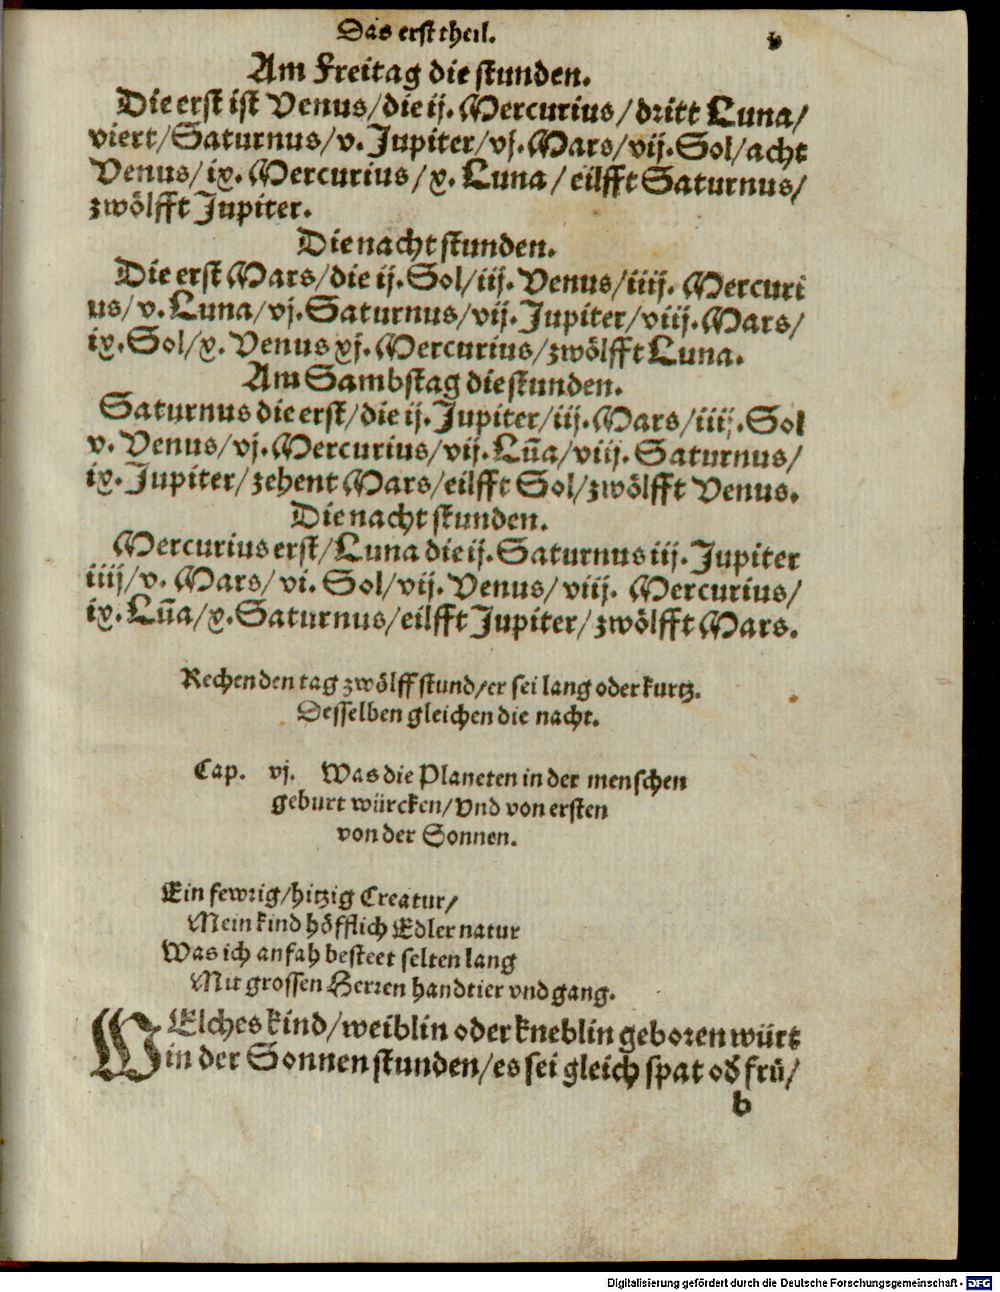 Das erst theil. v
Am Freitag die stunden.
Die erst ist Venus/die ij. Mercurius/dritt Luna/
viert/Saturnus/v. Jupiter/vj. Mars/vij. Sol/acht
Venus/ix. Mercurius/x. Luna/eilfft Saturnus/
zwölfft Jupiter.
Die nacht stunden.
Die erst Mars/die ij. Sol/iij. Venus/iiij. Mercuri
us/v. Luna/vj. Saturnus/vij. Jupiter/viij. Mars/
ix. Sol/x. Venus xj. Mercurius/zwölfft Luna.
Am Sambstag die stunden.
Saturnus die erst/die ij. Jupiter/iij. Mars/iiij. Sol
v. Venus/vj. Mercurius/vij. Lūa/viij. Saturnus/
ix. Jupiter/zehent Mars/eilfft Sol/zwölfft Venus.
Die nacht stunden.
Mercurius erst/Luna die ij. Saturnus iij. Jupiter
iiij/v. Mars/vi. Sol/vij. Venus/viij. Mercurius/
ix. Lūa/x. Saturnus/eilfft Jupiter/zwölfft Mars.
Rechen den tag zwölff stund/er sei lang oder kurtz.
Desselben gleichen die nacht.
Cap. vj. Was die Planeten in der menschen
geburt würcken/Vnd von ersten
von der Sonnen.
Ein fewrig/hitzig Creatur/
Mein kind höfflich Edler natur
Was ich anfah besteet selten lang
Mit grossen Herren handtier vnd gang.
WElches kind/weiblin oder kneblin geboren würt
in der Sonnen stunden/es sei gleich spat oď frü/
b
Digitalisierung gefördert durch die Deutsche Forschungsgemeinschaft - DFG